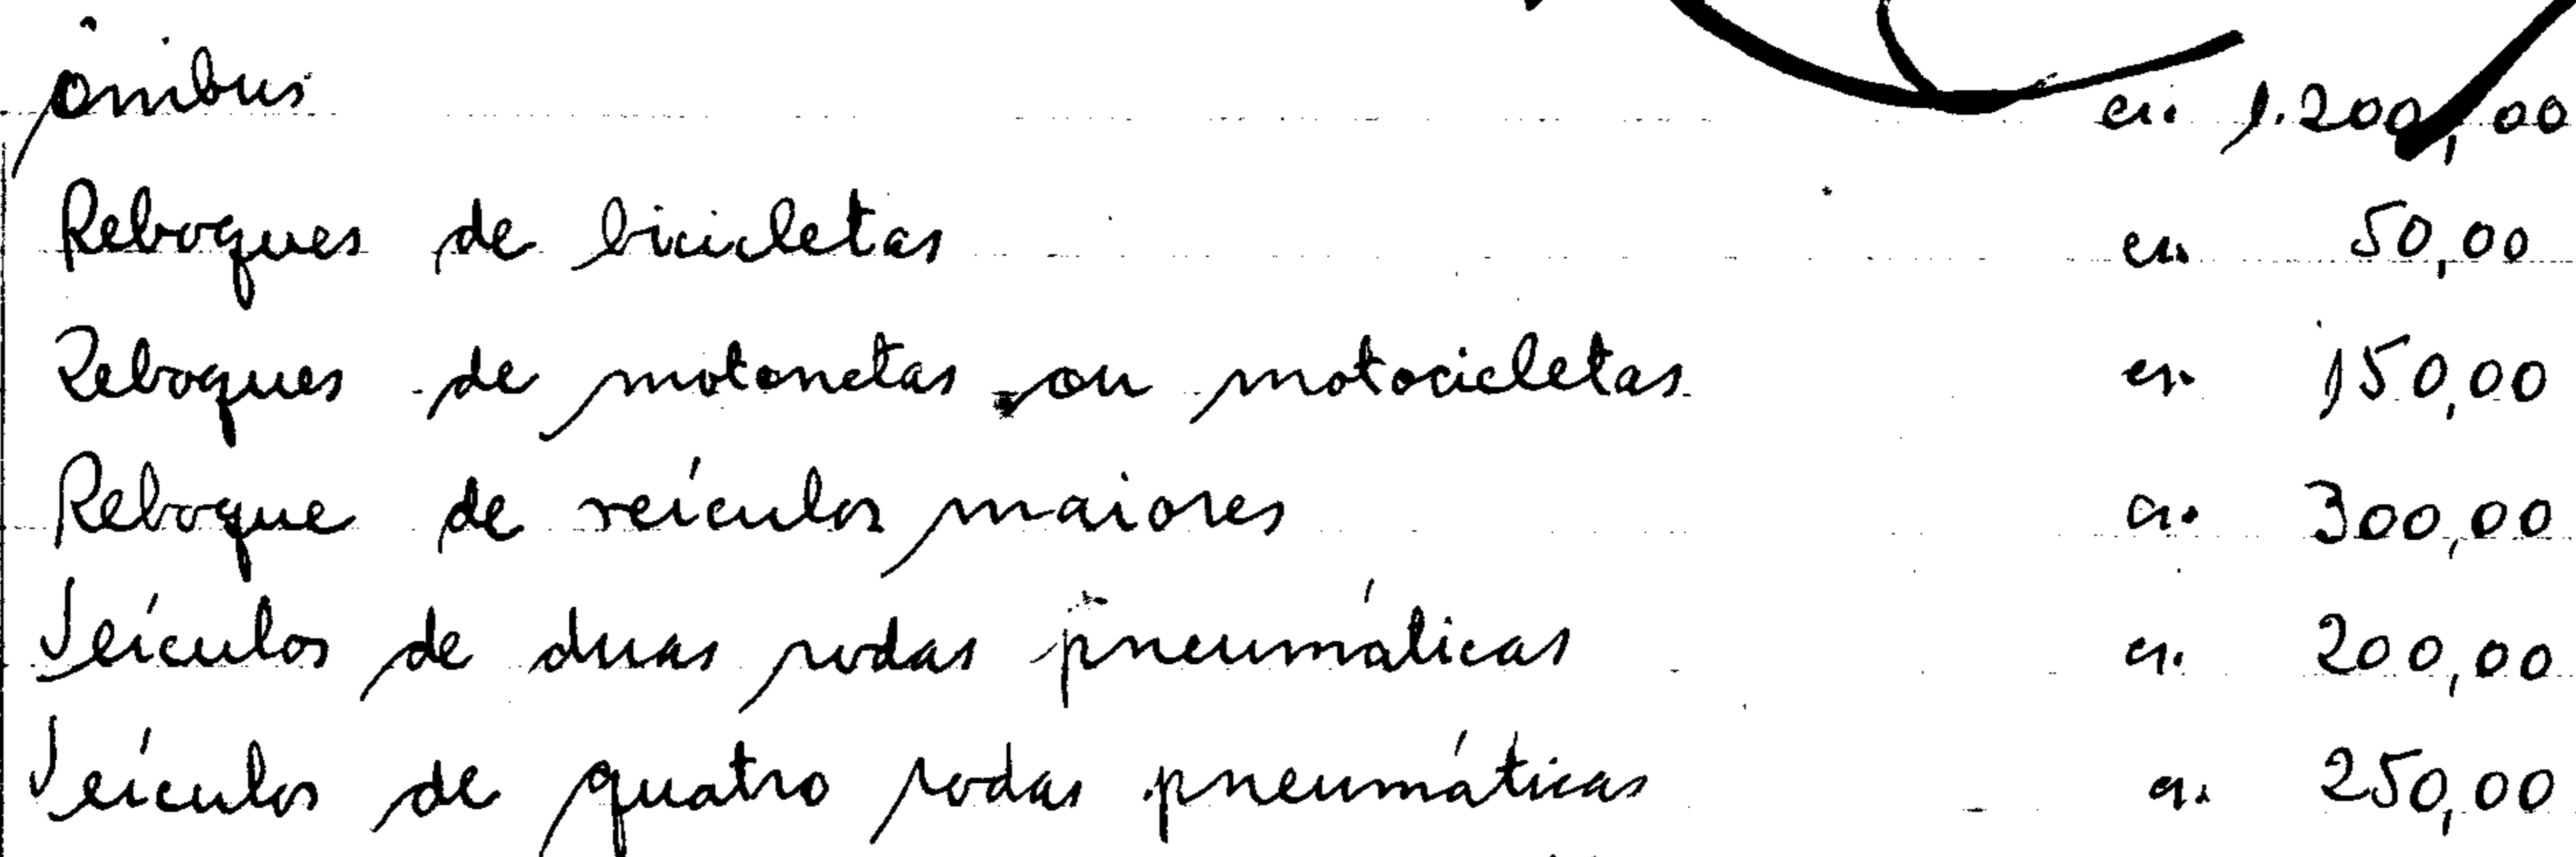 ônibus cr. 1.200,00
Reboques de bicicletas cr. 50,00
Reboques de motonetas ou motocicletas cr. 150,00
Reboque de veículos maiores cr. 300,00
Veículos de duas rodas pneumáticas cr. 200,00
Veículos de quatro rodas pneumáticas cr. 250,00